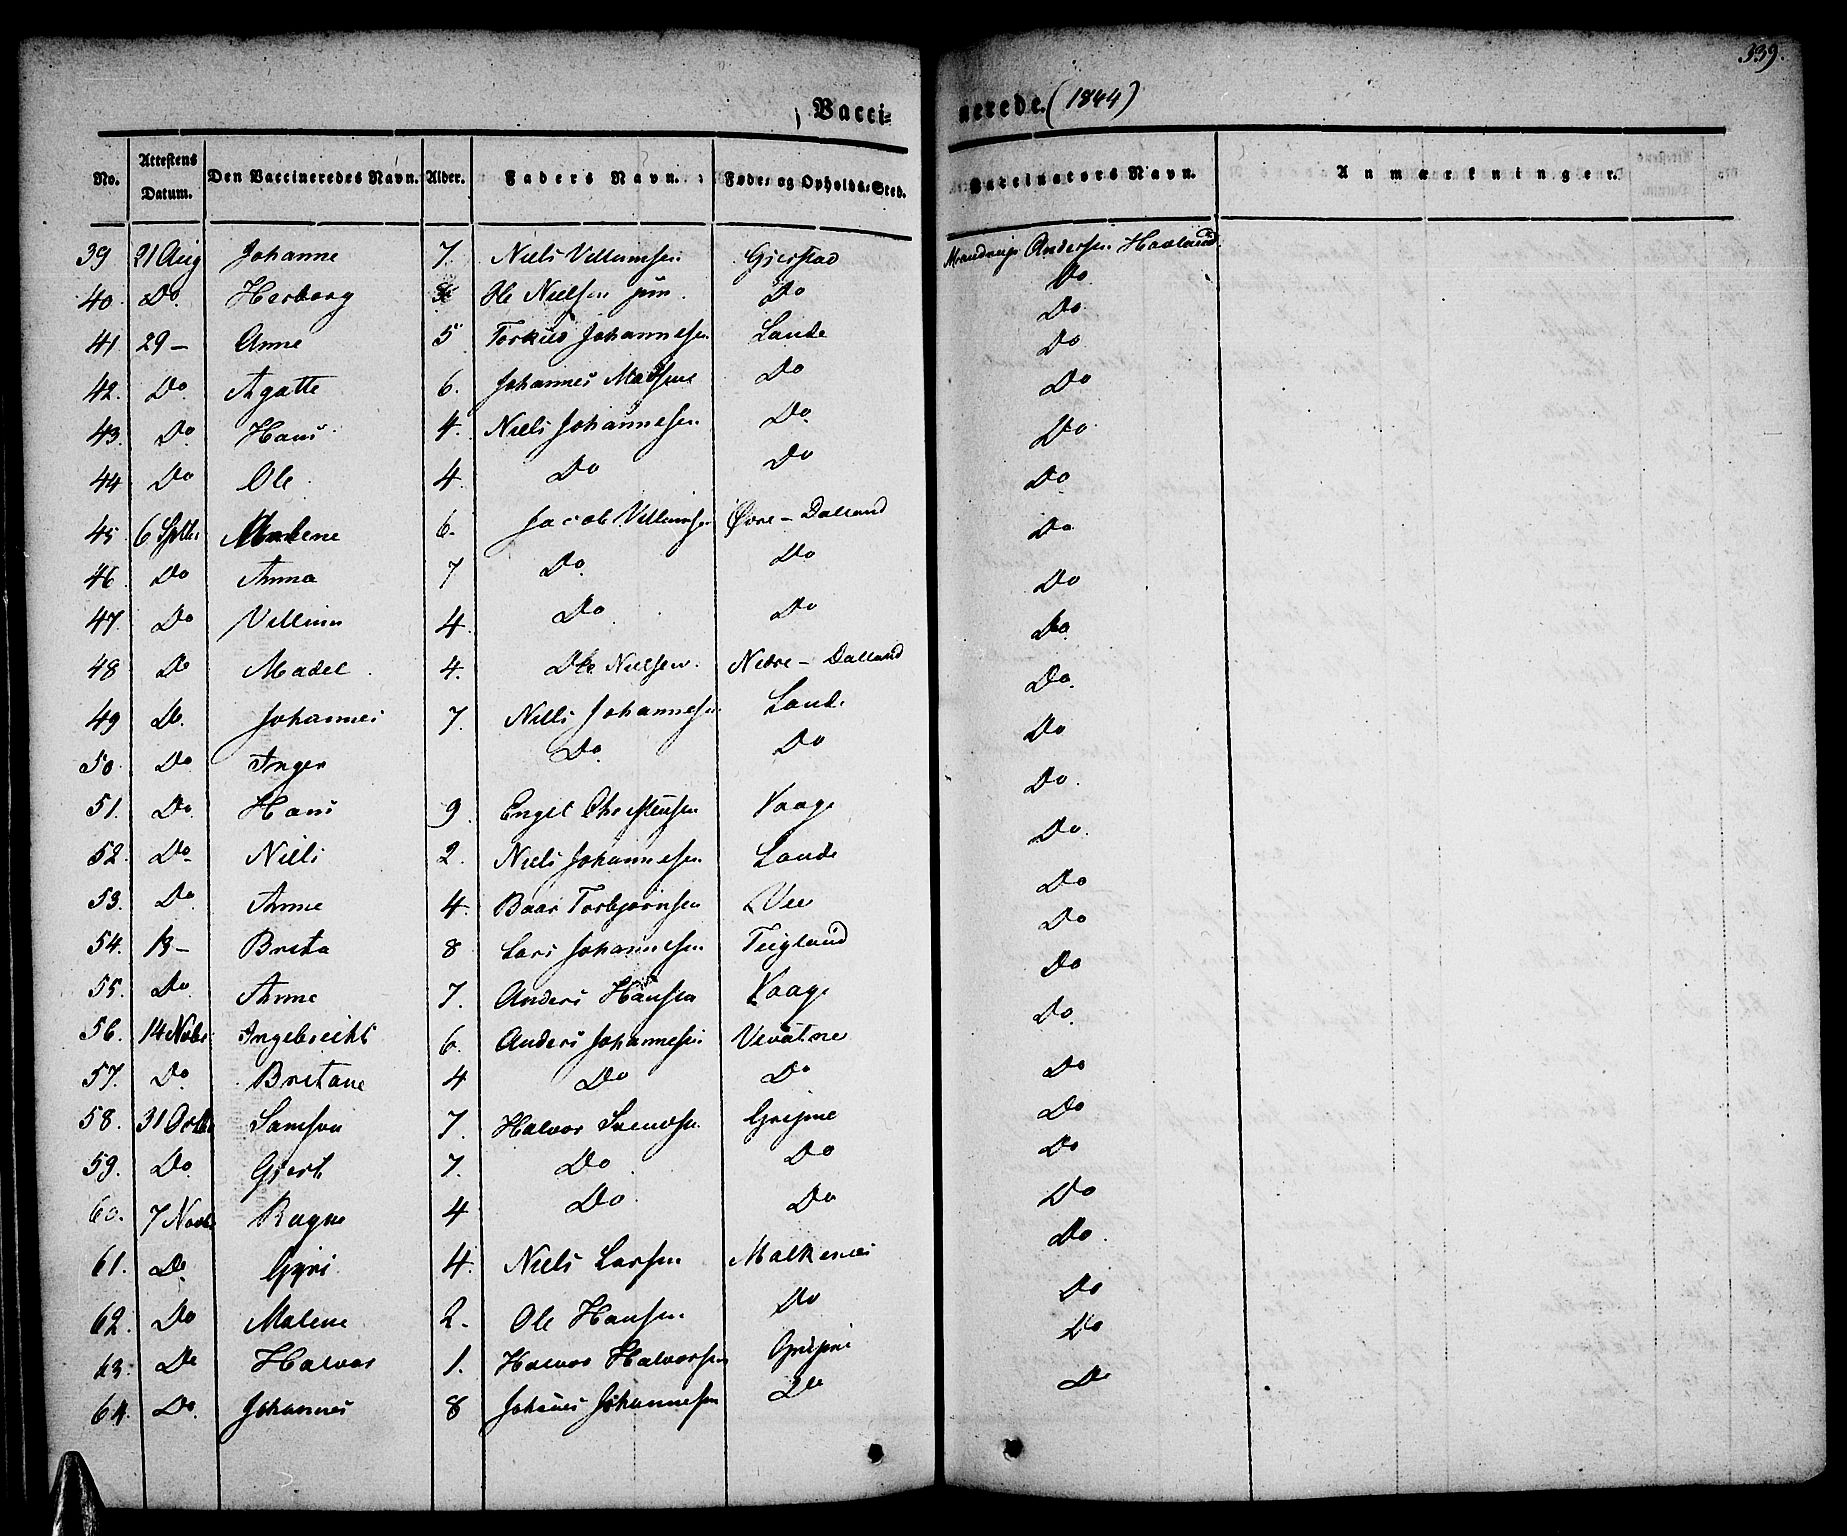 339.
Vaccinerede. (1844)
No. Attestens Datum. Den Vaccineredes Navn. Alder. Faders Navn. Føde- og Opholds-Sted. Vaccinators Navn. Anmærkninger.
39 21 Aug Johanne 7. Niels Villumsen Gjerstad Mandrup Andersen Havland
40. Do. Herborg Ole Nielsen jun. Do Do
41 29 – Anne 5 Torkild Johannesen Lande Do
42. Do. Agatte 6. Johannes Madsen Do Do
43. Do. Hans 4. Niels Johannesen Do. Do
44 Do Ole 4. Do Do Do.
45 6 Septbr Malene 6. Jacob Villumsen Øvre – Dalland Do
46. Do Anna 7 Do. Do Do.
47. Do Villum 4. Do Do Do
48 Do Madel 4. Ole Nielsen. Nedre – Dalland Do.
49 Do. Johannes 7. Niels Johannesen Lande Do.
50 Do. Inger Do. Do Do
51. Do. Hans 9. Engel Christensen Vaage Do.
52. Do. Niels 2. Niels Johannesen Lande Do.
53. Do. Anne 4. Baar Torbjørnsen Vee Do
54. 13 – Brita 8 Lars Johannesen Teigland Do
55. Do. Anne 7. Anders Hansen Vaage Do
56. 14 Novbr Ingebrecht 6. Anders Johannesen Vevatne Do.
57. Do. Britane 4 Do Do Do
58. 31 Octbr Samson 7. Halvor Svendsen Grisne Do
59. Do. Gjert 7. Do Do Do
60. 7 Novbr Ragne 4 Do. Do Do
61. Do Gyri 4. Niels Larsen Malkenes Do.
62. Do Malene 2. Ole Hansen Do Do
63. Do Halvor 1. Halvor Halvorsen Grisne Do
64. Do. Johannes 8 Johannes Johannesen Do Do